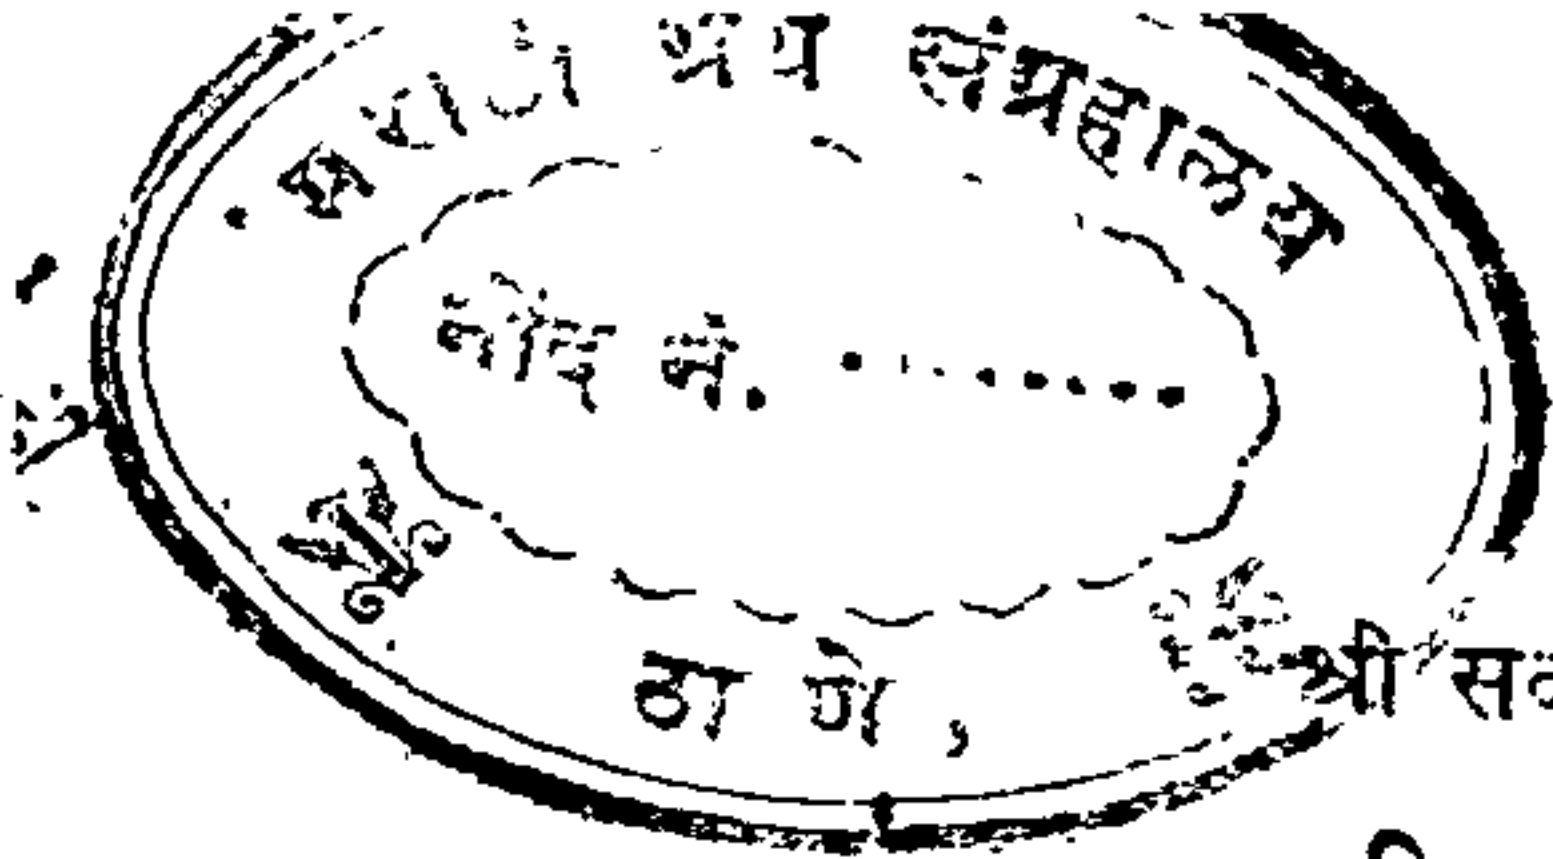 मराठी ग्रंथ संग्रहालय
नोंद नं. ........
ठाणे,
श्री